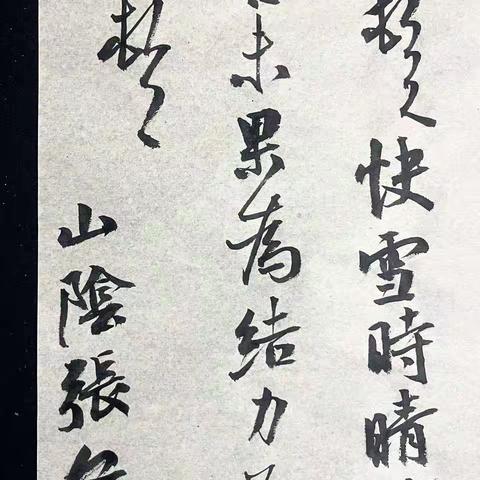 頓首快雪時晴
未果為結力
頓首
山陰張